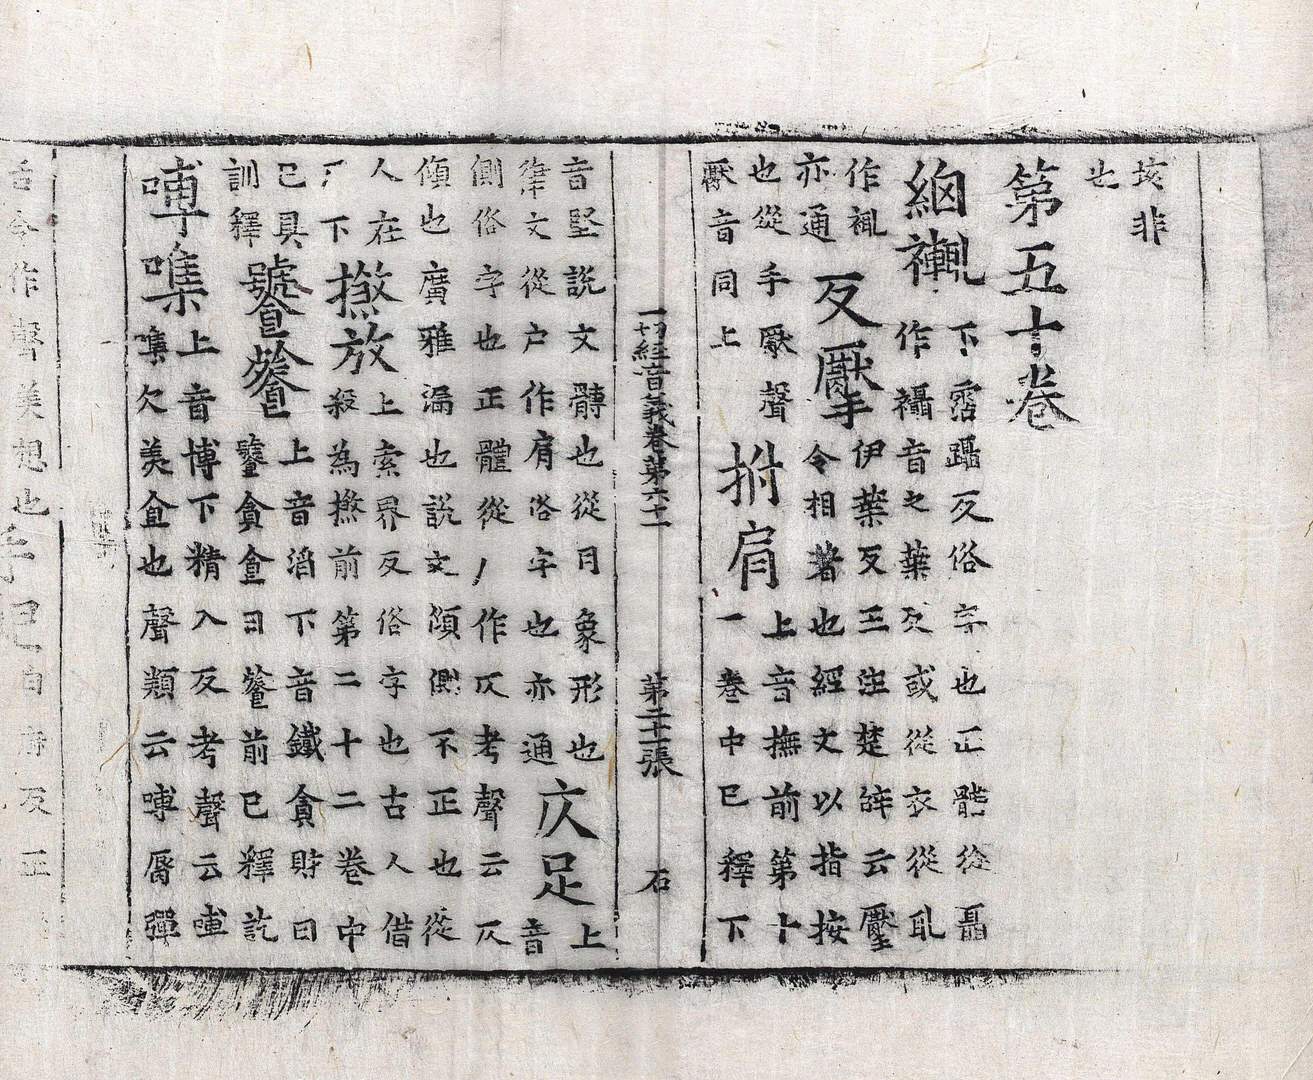 垓非
也
第五十卷
絇襵
下霑躡反俗字也正體從聶
作襵音之葉反或從衣從耴
作䙝
亦通
反擪
伊葉反王注楚辭云壓
令相著也經文以指按
也從手厭聲
厭音同上
拊肩
上音撫前第十
一卷中已釋下
一切經音義卷第六十一
第二十二張
石
音堅說文髆也從月象形也
從戶作肩俗字也亦通
仄足
上音
側俗字也正體從人作仄考聲云仄
傾也廣雅漏也說文傾側不正也從
人在
厂下
撚放
上索界反俗字也古人借
殺為撚前第二十二卷中
已具
訓釋
饕餮
上音滔下音鐵貪財曰
饕貪食曰餮前已釋訖
嚩噍
上音博下精入反考聲云嚩
噍欠美食也聲類云嚩脣彈
舌令作聲美想也